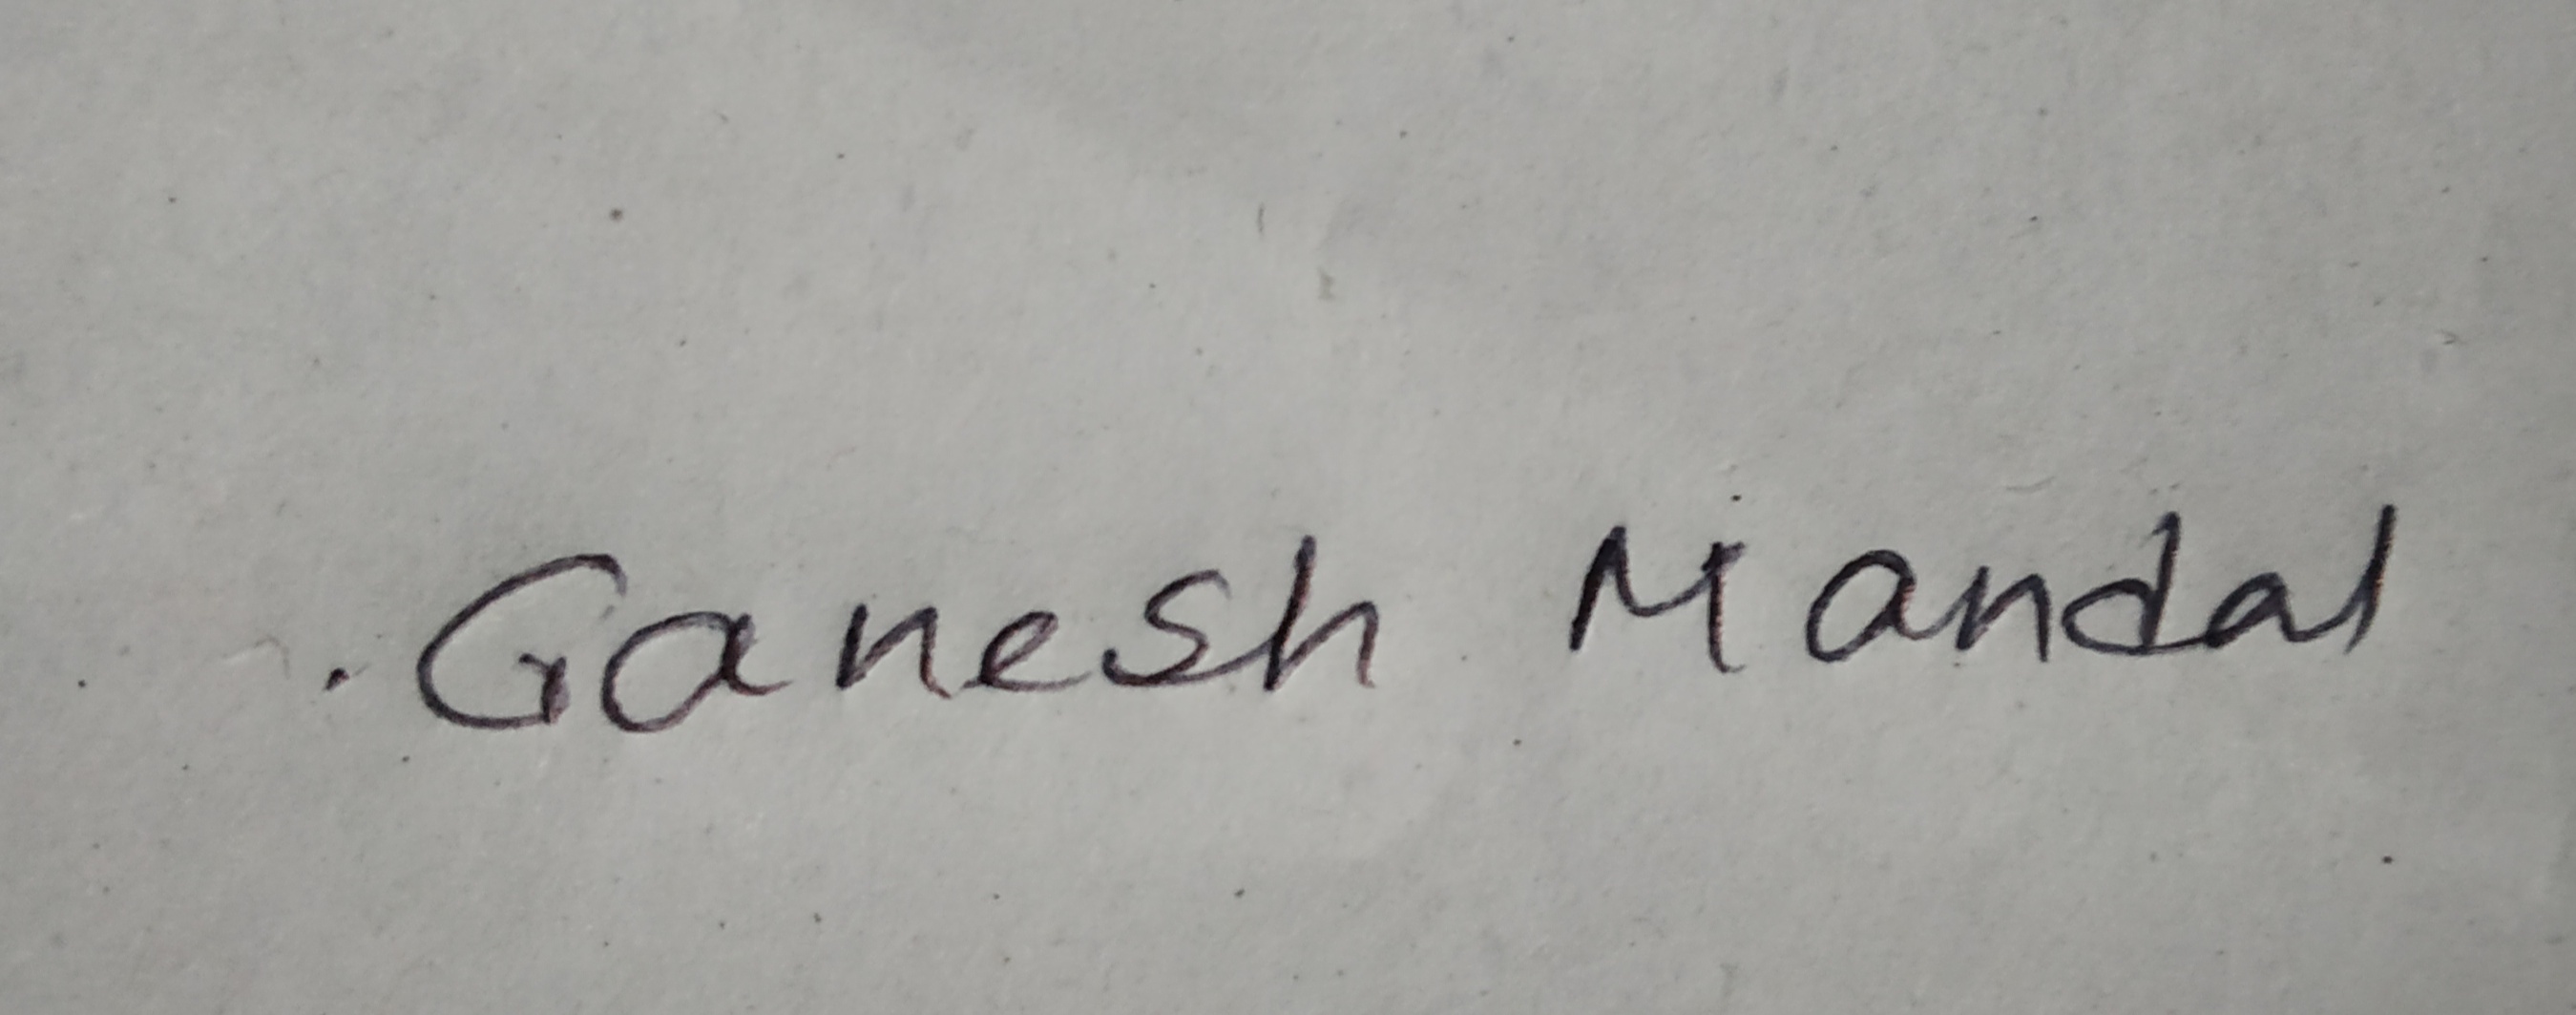 Ganesh Mandal